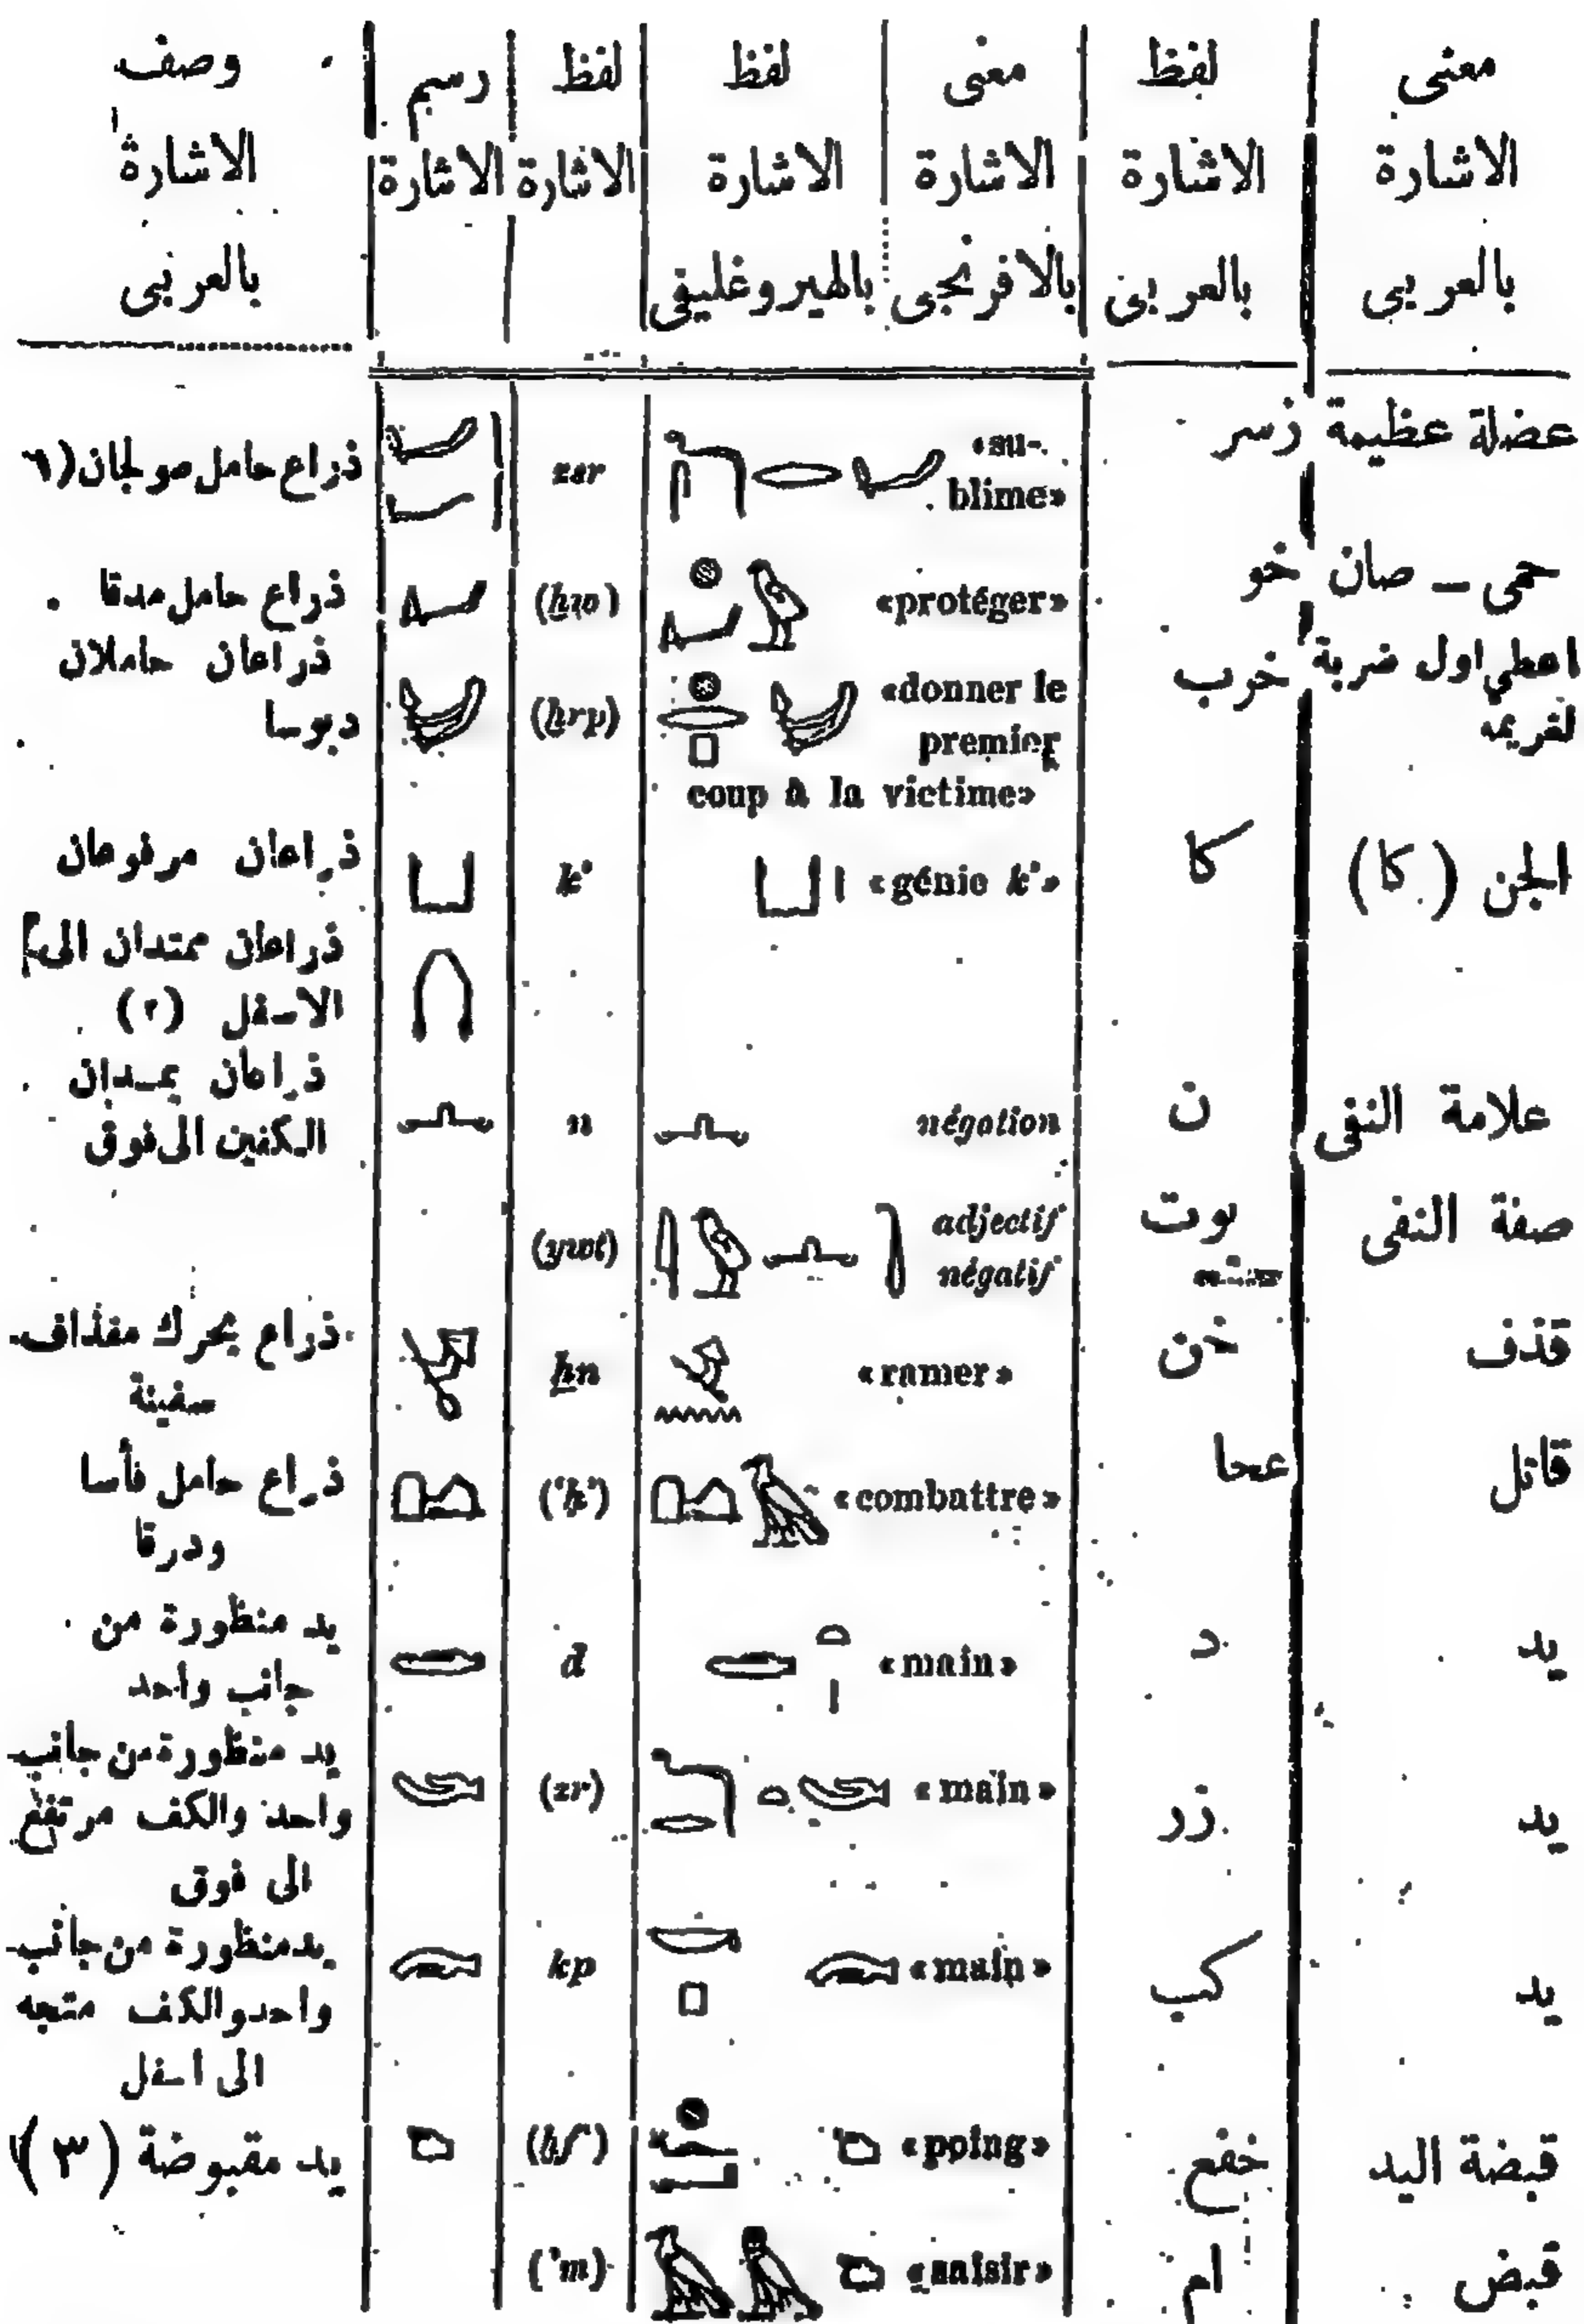 معنى الاشارة بالعربي | لفظ الاشارة بالعربي | معنى الاشارة بالافرنجى | لفظ الاشارة بالهيروغليقى | لفظ الاشارة | رسم الاشارة | وصف الاشارة بالعربى
عضلة عظيمة | زسر | «su-blime» | zer | ذراع حامل صولجان
حمى – صان | خو | «protéger» | (ḫw) | ذراع حامل مدقا
اعطي اول ضربة لغريمه | خرب | «donner le premier coup à la victime» | (ḫrp) | ذراعان حاملان دبوسا
الجن (كا) | كا | «génie k'» | k' | ذراعان مرفوعان
ذراعان ممتدان الى الاسفل (٢)
علامة النفى | ن | négation | n | ذراعان يمـدان الكفين الى فوق
صفة النفى | يوت | adjectif négatif | (ywt)
قذف | خن | «ramer» | ẖn | ذراع يحرك مقذاف سفينة
قاتل | عحا | «combattre» | ('ḥ') | ذراع حامل فأسا ودرقا
يد | د | «main» | d | يد منظورة من جانب واحد
يد | زر | «main» | (zr) | يد منظورة من جانب واحد والكف مرتفع الى فوق
يد | كب | «main» | kp | يد منظورة من جانب واحد والكف متجه الى اسفل
قبضة اليد | خفع | «poing» | (ḫf') | يد مقبوضة (٣)
قبض | ام | «saisir» | ('m)